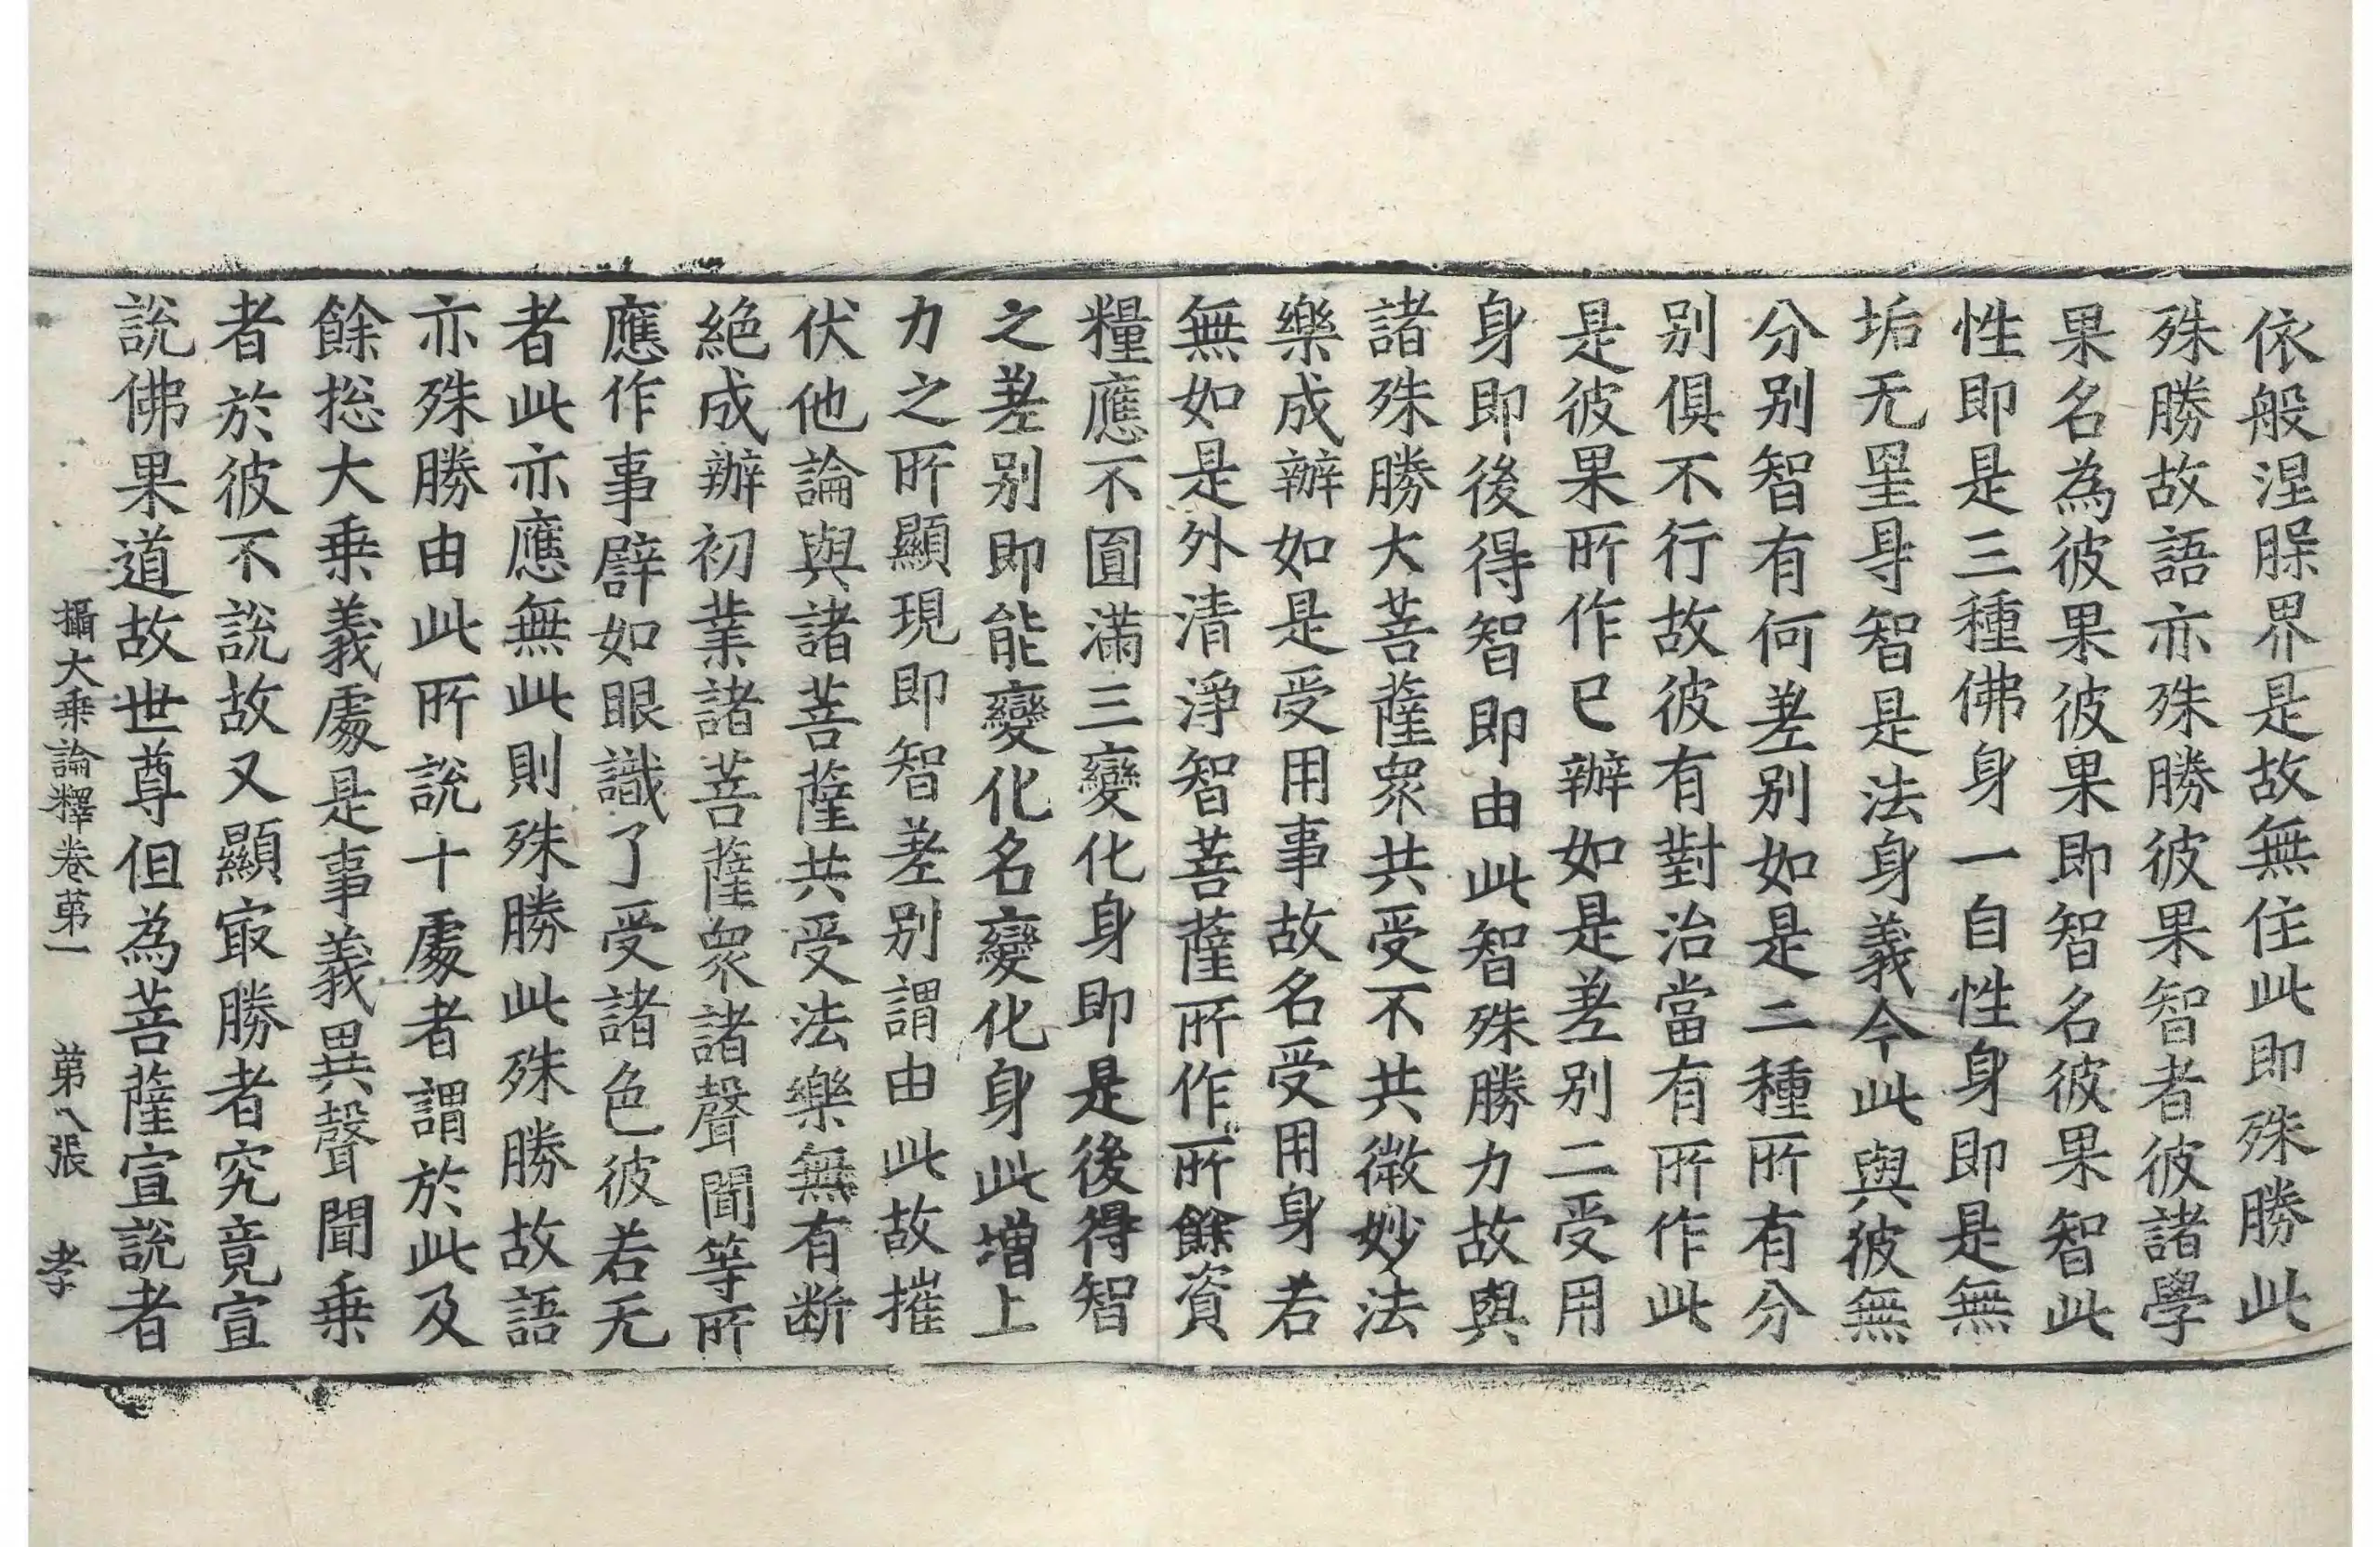 依般涅腂界是故無住此即殊勝此
殊勝故語亦殊勝彼果智者彼諸學
果名為彼果彼果即智名彼果智此
性即是三種佛身一自性身即是無
垢无㝵智是法身義今此與彼無
分别智有何差别如是二種所有分
别俱不行故彼有對治當有所作此
是彼果所作已辦如是差别二受用
身即後得智即由此智殊勝力故與
諸殊勝大菩薩衆共受不共微妙法
樂成辦如是受用事故名受用身若
無如是外清淨智菩薩所作所餘資
糧應不圓滿三變化身即是後得智
之差别即能變化名變化身此增上
力之所顯現即智差别謂由此故摧
伏他論與諸菩薩共受法樂無有断
絕成辦初業諸菩薩衆諸聲聞等所
應作事譬如眼識了受諸色彼若无
者此亦應無此則殊勝此殊勝故語
亦殊勝由此所說十處者謂於此及
餘捴大乗義處是事義異聲聞乗
者於彼不說故又顯㝡勝者究竟宣
說佛果道故世尊但為菩薩宣說者
攝大乗論釋卷苐一 苐八張 孝